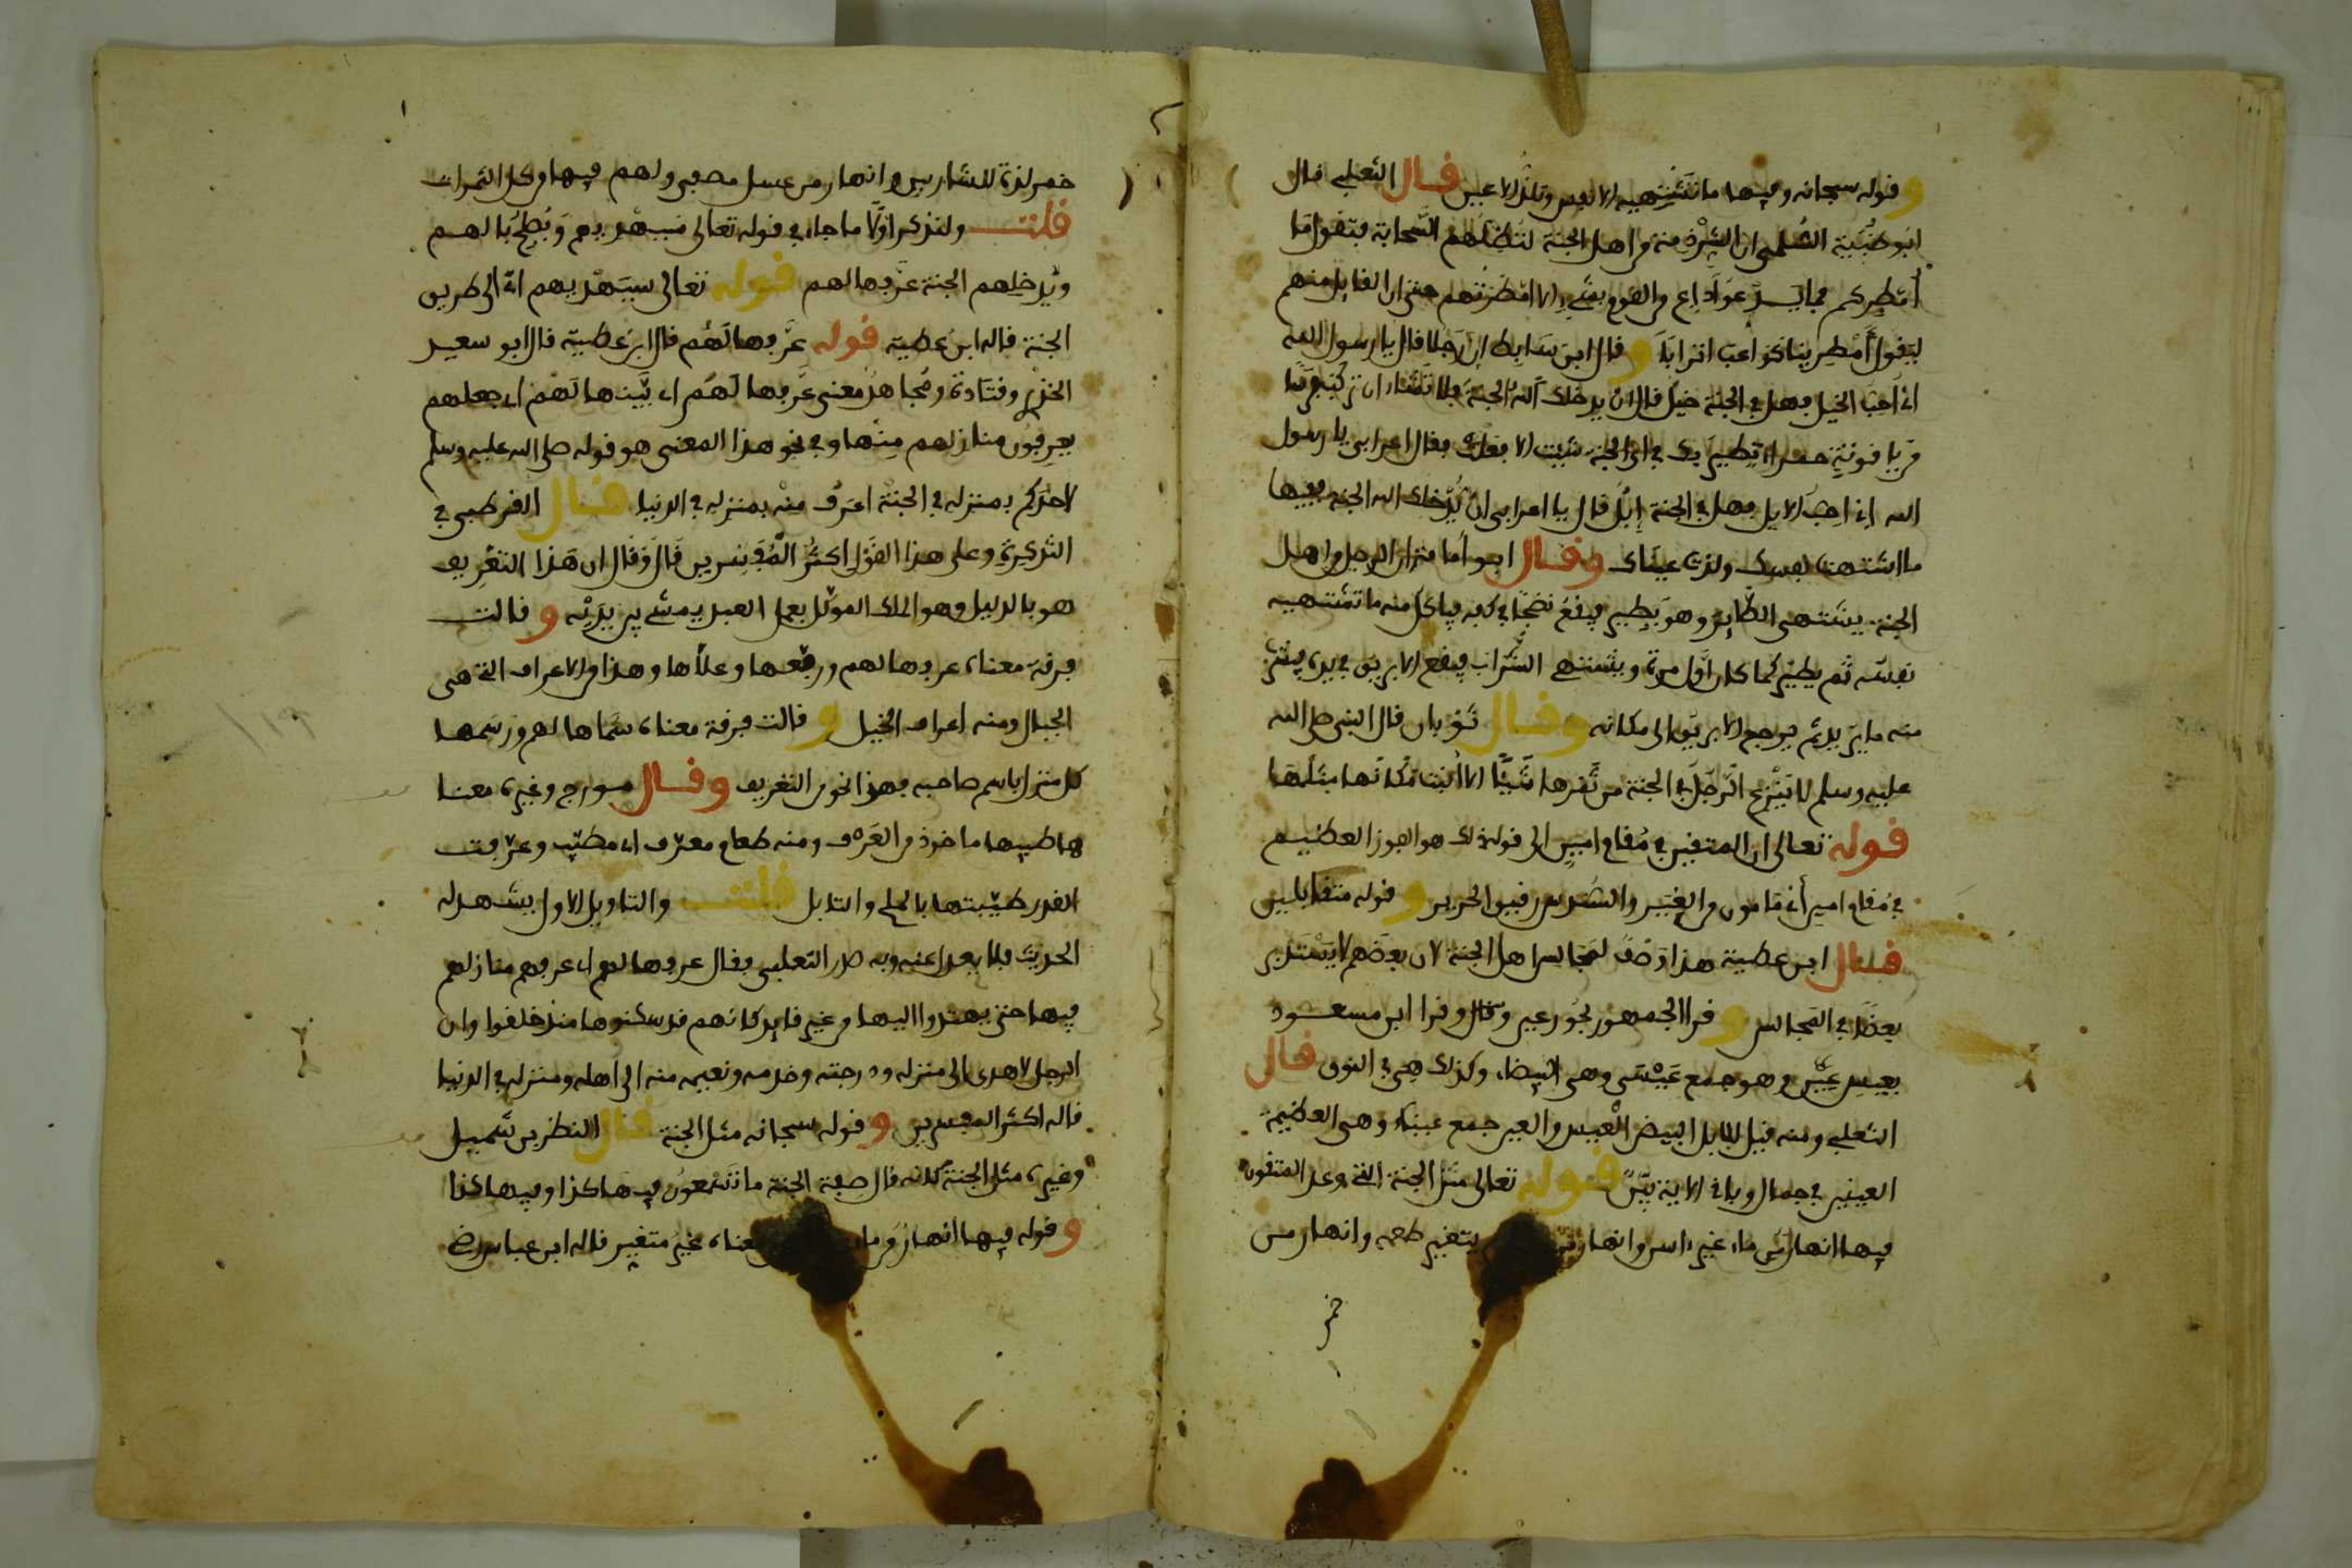 وقوله سبحانه وفيها ما تشتهيه الانفس وتلذ الاعين قال الثعلبي قال
ابو ظبية السلمي ان الشرذمة من اهل الجنة لتظلهم السحابة فتقول ما
أمطركم فما يدعوا داع من القوم بشيء الا امطرتهم حتى ان القايل منهم
ليقول أمطرينا كواعب اترابا وقال ابن سابط ان رجلا قال يا رسول الله
اني احب الخيل فهل في الجنة خيل قال ان يدخلك الله الجنة فلا تشاء ان تركب فرسا
من ياقوتة حمراء تطير بك في اي الجنة شيت الا فعلت فقال اعرابي يا رسول
الله اني احب الابل فهل في الجنة إبل قال يا اعرابي ان يدخلك الله الجنة ففيها
ما اشتهت نفسك ولذت عيناك وقال ابو أمامة ان الرجل من اهل
الجنة يشتهي الطاير وهو يطير فيقع نضجا في كفه فياكل منه ما تشتهيه
نفسه ثم يطير كما كان اول مرة ويشتهي الشراب فيقع الابريق في يده فيشرب
منه ما يريد ثم يرجع الابريق الى مكانه وقال ثوبان قال النبي صلى الله
عليه وسلم لا ينزع الرجل في الجنة من ثمرها شيئا الا انبت مكانها مثلها
قوله تعالى ان المتقين في مقام امين الى قوله ذلك هو الفوز العظيم
في مقام امين أي مامون من الغير والسندس رقيق الحرير وقوله متقابلين
قال ابن عطية هذا وصف لمجالس اهل الجنة لان بعضهم لا يستدبر
بعضا في المجالس وقرا الجمهور بحور عين وقال وقرا ابن مسعود
بعيس عين وهو جمع عيساء وهي البيضاء وكذلك هي في النوق قال
الثعلبي ومنه قيل للابل البيض العيس والعين جمع عيناء وهي العظيمة
العينين في جمال وباقي الاية بين قوله تعالى مثل الجنة التي وعد المتقون
فيها انهار من ماء غير ءاسن وانهار من يتغير طعمه وانهار من
خمر
خمر لذة للشاربين وانهار من عسل مصفى ولهم فيها من كل الثمرات
قلت ولنذكر اولا ما جاء في قوله تعالى سيهديهم ويصلح بالهم
ويدخلهم الجنة عرفها لهم قوله تعالى سيهديهم اي الى طريق
الجنة قاله ابن عطية قوله عرفها لهم قال ابن عطية قال ابو سعيد
الخدري وقتادة ومجاهد معنى عرفها لهم اي بينها لهم اي جعلهم
يعرفون منازلهم منها وفي نحو هذا المعنى هو قوله صلى الله عليه وسلم
لاحدكم بمنزله في الجنة اعرف منه بمنزله في الدنيا قال القرطبي في
التذكرة وعلى هذا القول اكثر المفسرين قال وقال ان هذا التعريف
هو بالدليل وهو الملك الموكل بعمل العبد يمشي بين يديه وقالت
فرقة معناه عرفها لهم ورفعها وعلاها وهذا من الاعراف التي هي
الجبال ومنه اعراف الخيل وقالت فرقة معناه سماها لهم ورسمها
كل منزل باسم صاحبه فهذا نحو من التعريف وقال مورج وغيره معنا
ها طيبها ماخوذ من العرف ومنه طعام معرف اي مطيب وعرفت
القدر طيبتها بالملح والتابل قلت والتاويل الاول يشهد له
الحديث فلا يعدل عنه وبه صدر الثعلبي فقال عرفها لهم اي عرفهم منازلهم
فيها حتى يهتدوا اليها من غير قايد كانهم قد سكنوها منذ خلقوا وان
الرجل لاهدى الى منزله ودرجته وخدمه ونعيمه منه الى اهله ومنزله في الدنيا
قاله اكثر المفسرين وقوله سبحانه مثل الجنة قال النظر بن شميل
وغيره مثل الجنة كانه قال صفة الجنة ما تسمعون فيها كذا وفيها كذا
وقوله فيها انهار من ما معناه غير متغير قاله ابن عباس رض